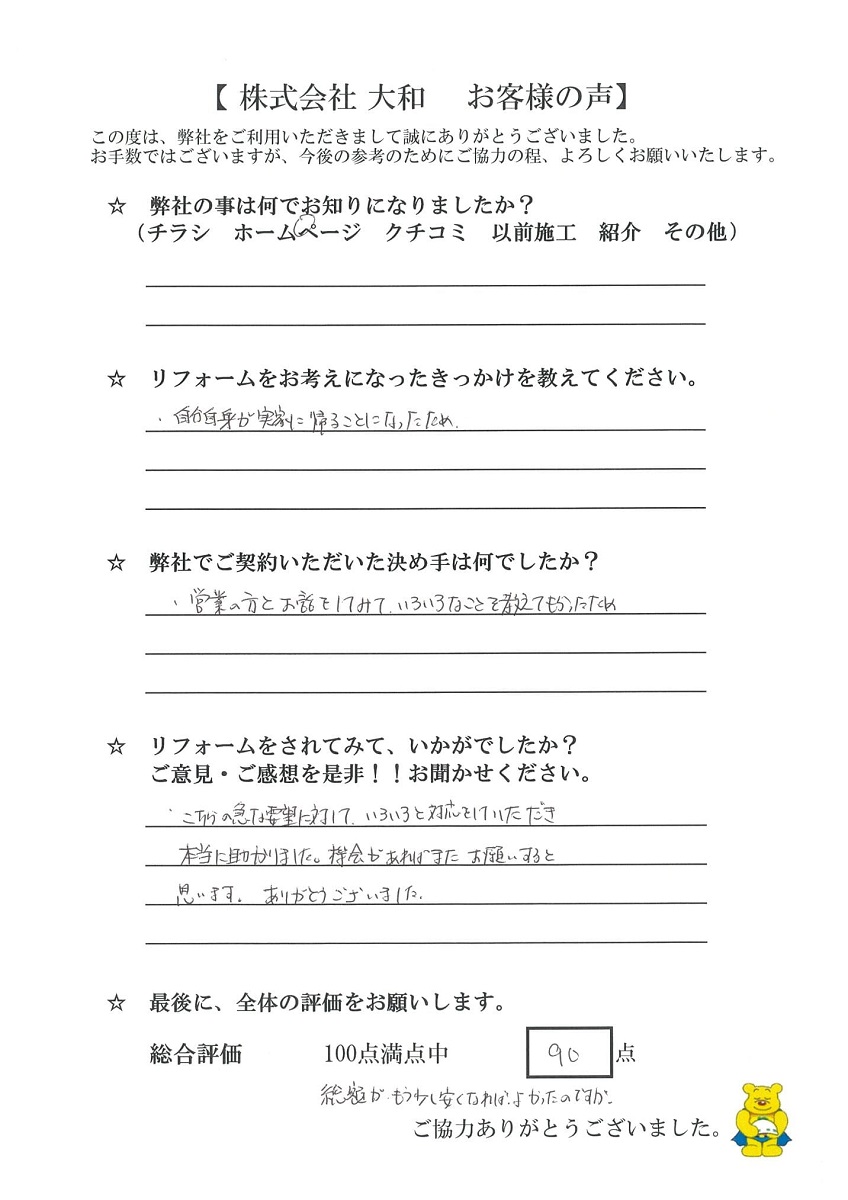 【 株式会社 大和　お客様の声】
この度は、弊社をご利用いただきまして誠にありがとうございました。
お手数ではございますが、今後の参考のためにご協力の程、よろしくお願いいたします。
☆　弊社の事は何でお知りになりましたか？
（チラシ　ホームページ　クチコミ　以前施工　紹介　その他）
☆　リフォームをお考えになったきっかけを教えてください。
・自分自身が実家に帰ることになったため.
☆　弊社でご契約いただいた決め手は何でしたか？
・営業の方とお話をしてみて、いろいろなことを教えてもらったため
☆　リフォームをされてみて、いかがでしたか？
ご意見・ご感想を是非！！お聞かせください。
・こちらの急な要望に対して、いろいろと対応をしていただき
本当に助かりました。機会があればまたお願いすると
思います。ありがとうございました.
☆　最後に、全体の評価をお願いします。
総合評価　100点満点中　90 点
総額がもう少し安くなればよかったのですが。
ご協力ありがとうございました。